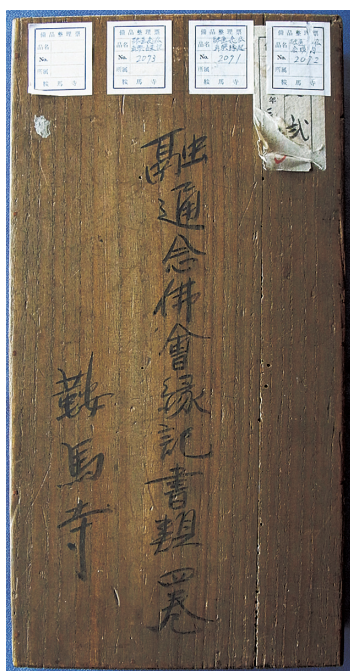 備品整理票
品名
No. 2092
所属
鞍馬寺
備品整理票
品名
No. 2091
所属
鞍馬寺
備品整理票
品名
No. 2093
所属
鞍馬寺
備品整理票
品名
No.
所属
鞍馬寺
年
弐
融通念佛會縁記書類四巻
鞍馬寺